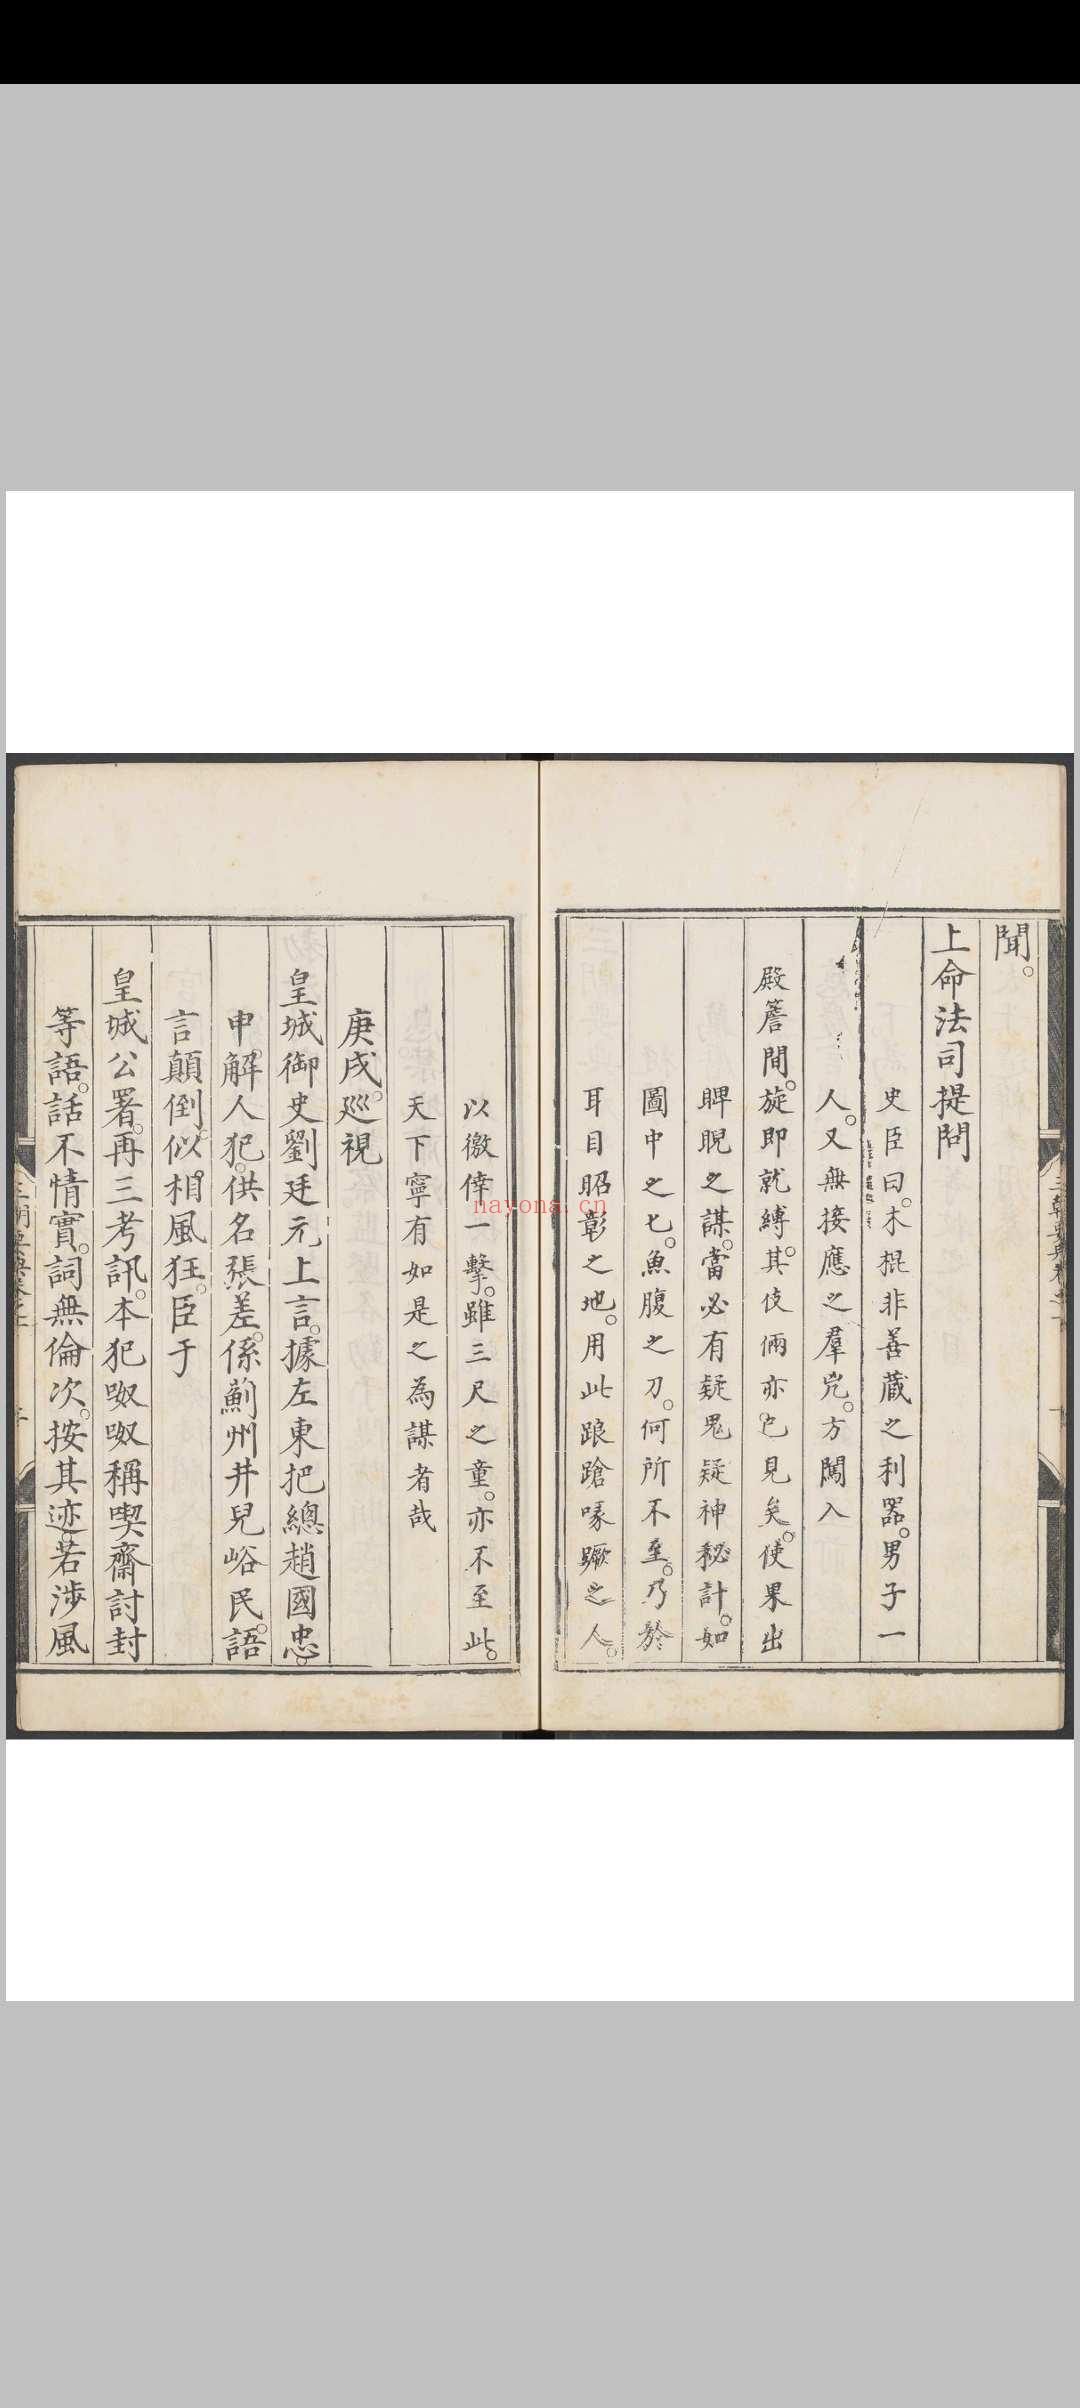 聞。
上命法司提問
史臣曰。木棍非善藏之利器。男子一
人。又無接應之羣兇。方闖入
殿簷間。旋即就縛。其伎倆亦已見矣。使果出
睥睨之謀。當必有疑鬼疑神秘計。如
圖中之匕。魚腹之刀。何所不至。乃於
耳目昭彰之地。用此踉蹌喙蹶之人。
以徼倖一擊。雖三尺之童。亦不至此。
天下寧有如是之為謀者哉
庚戌。廵視
皇城御史劉廷元上言。據左東把總趙國忠。
申。解人犯。供名張差。係薊州井兒峪民。語
言顛倒。似相風狂。臣于
皇城公署。再三考訊。本犯呶呶稱喫齋討封
等語。話不情實。詞無倫次。按其迹。若涉風
三朝要典卷之一
nayona.cn